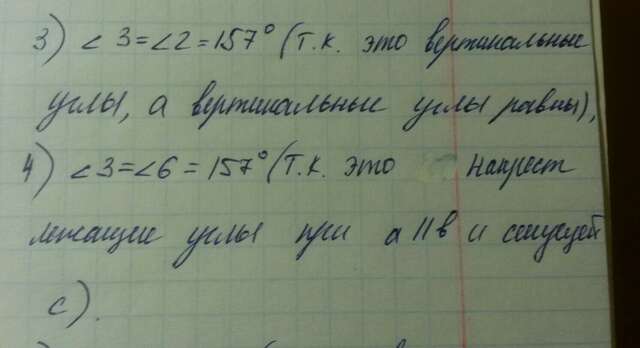 3) ∠3=∠2=157° (т.к. это вертикальные
углы, а вертикальные углы равны),
4) ∠3=∠6=157° (т.к. это накрест
лежащие углы при a||b и секущей
c).